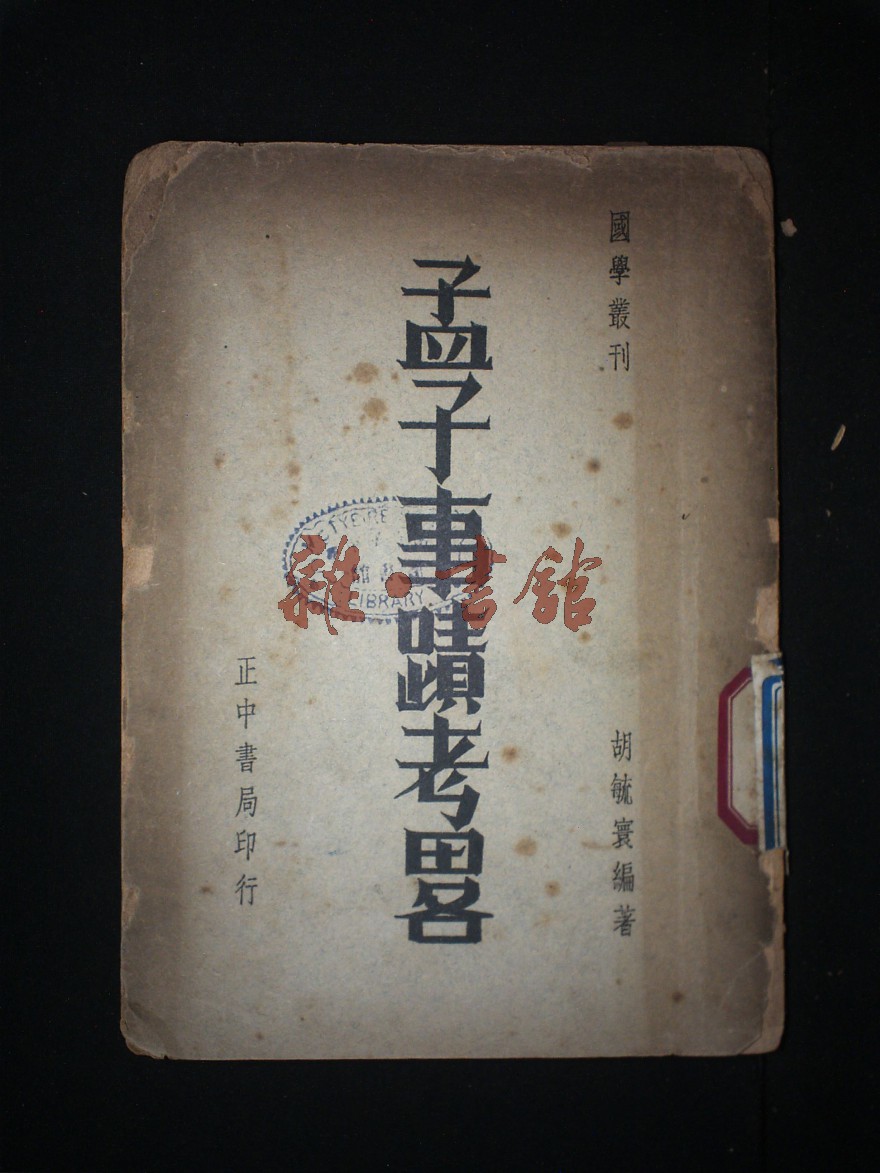 國學叢刊
胡毓寰編著
孟子事蹟考畧
正中書局印行
雜·書館
LIBRARY